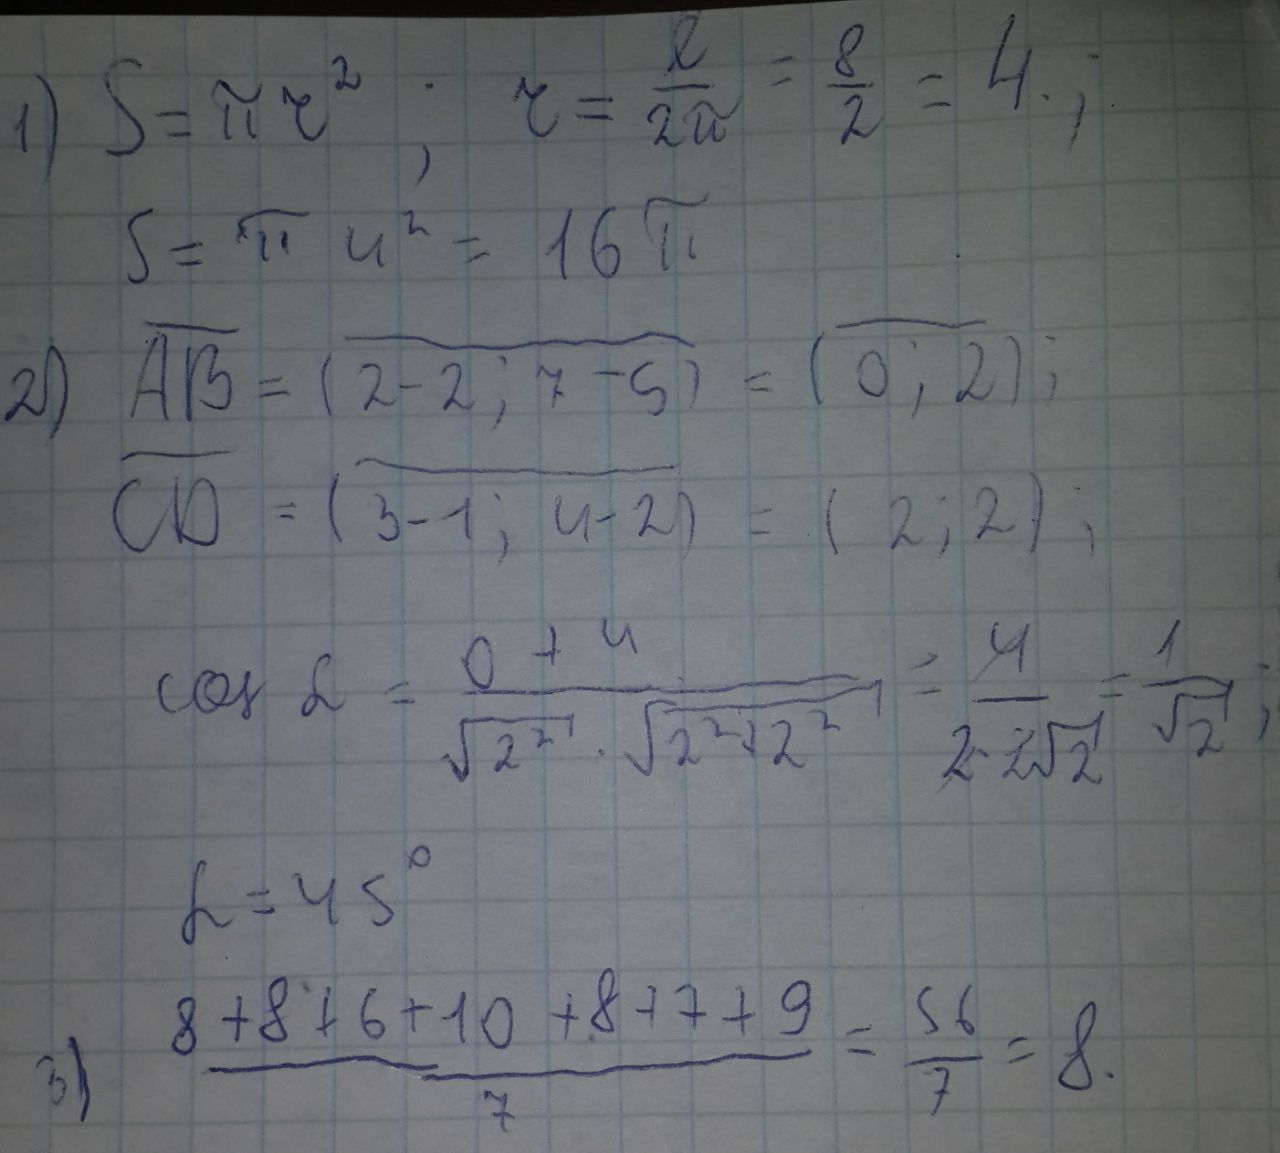 1) S = πr²; r = l/2π = 8/2 = 4.;
S = π 4² = 16π
2) AB = (2-2; 7-5) = (0; 2);
CD = (3-1; 4-2) = (2; 2);
cos α = (0 + 4)/(√2² · √2²+2²) = 4/(2·2√2) = 1/√2;
α = 45°
3) (8+8+6+10+8+7+9)/7 = 56/7 = 8.